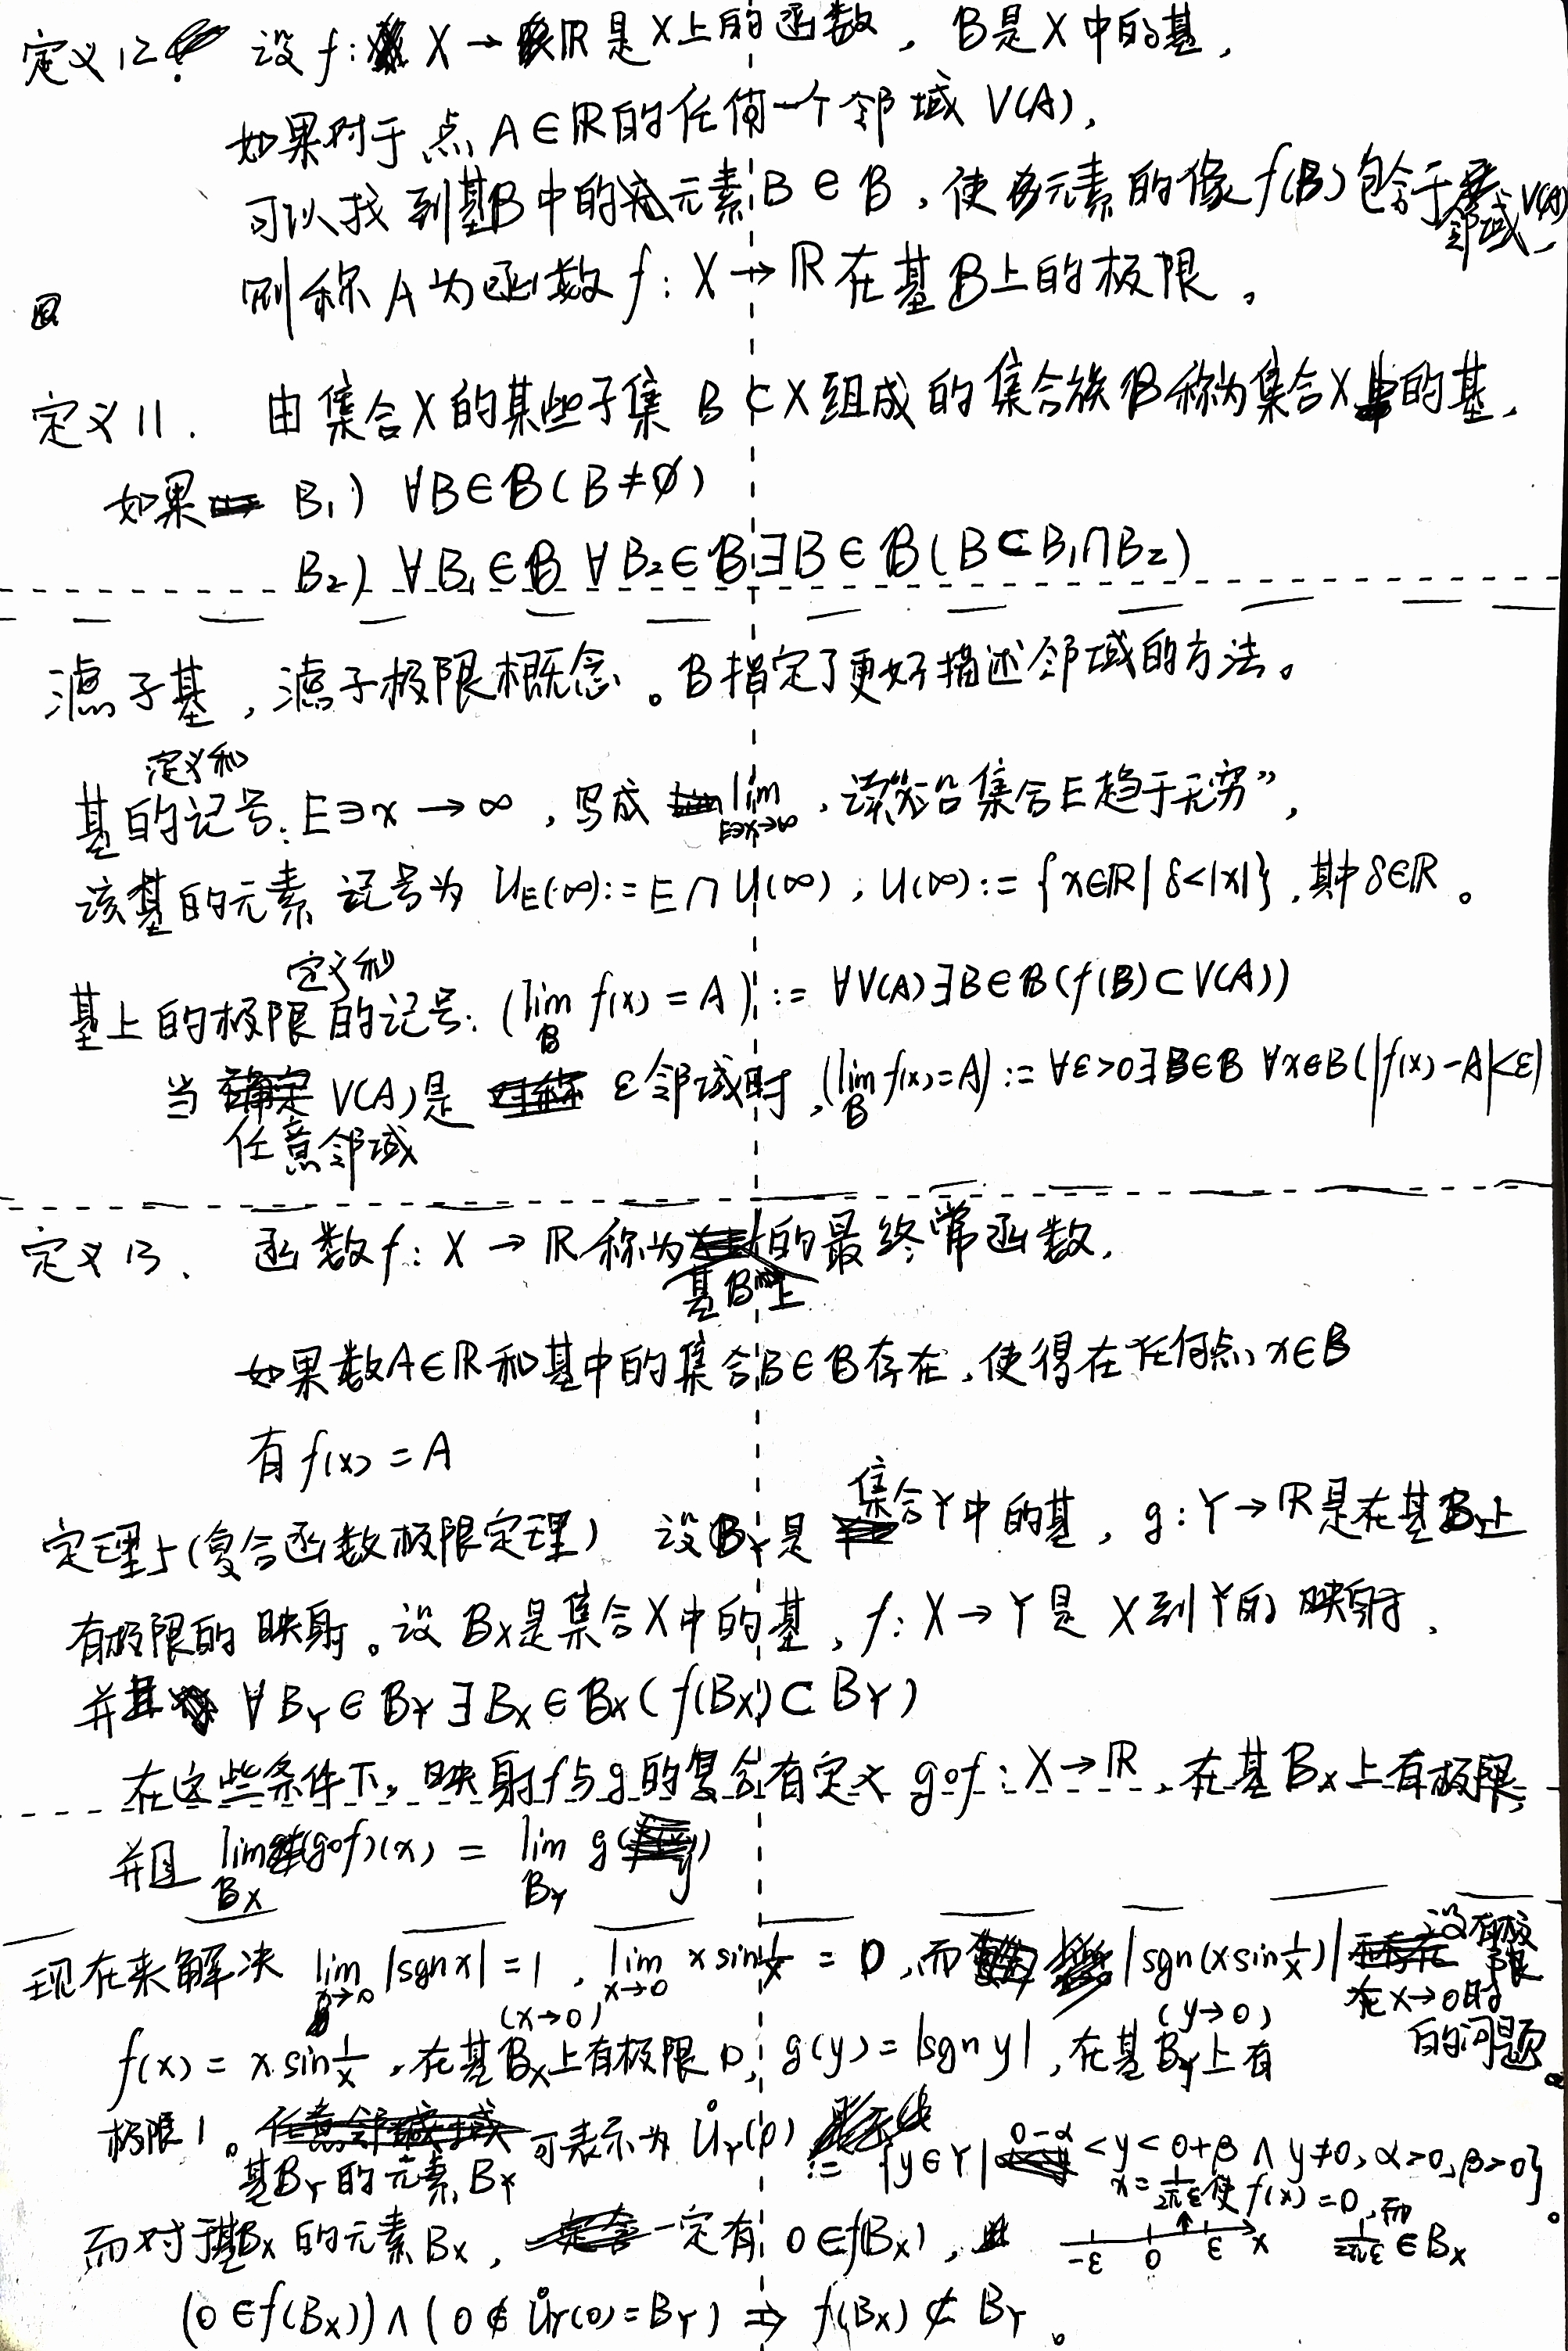 定义12. 设 f: X → ℝ 是 X 上的函数，𝓑 是 X 中的基，
如果对于点 A∈ℝ 的任何一个邻域 V(A),
可以找到基𝓑中的元素 B∈𝓑，使该元素的像 f(B) 包含于邻域 V(A)
则称 A 为函数 f: X → ℝ 在基𝓑上的极限。
定义11. 由集合X的某些子集 B⊂X 组成的集合族𝓑称为集合X中的基,
如果 B₁) ∀B∈𝓑(B≠∅)
B₂) ∀B₁∈𝓑 ∀B₂∈𝓑 ∃B∈𝓑(B⊂B₁∩B₂)
滤子基，滤子极限概念。𝓑指定了更好描述邻域的方法。
基的定义和记号: E∋x→∞，写成 lim E∋x→∞，读“x沿集合E趋于无穷”,
该基的元素 记号为 U_E(∞):=E∩U(∞), U(∞):={x∈ℝ| δ<|x|}, 其中δ∈ℝ。
基上的极限的定义和记号: (lim_𝓑 f(x)=A) := ∀V(A)∃B∈𝓑(f(B)⊂V(A))
当任意邻域 V(A)是 ε邻域时, (lim_𝓑 f(x)=A) := ∀ε>0∃B∈𝓑 ∀x∈B(|f(x)-A|<ε)
定义13. 函数 f: X → ℝ 称为基𝓑上的最终常函数,
如果数A∈ℝ和基中的集合B∈𝓑存在,使得在任何点x∈B
有 f(x)=A
定理5(复合函数极限定理) 设𝓑_Y是集合Y中的基, g: Y→ℝ是在基𝓑_Y上
有极限的映射。设 𝓑_X是集合X中的基, f: X→Y是 X到Y的映射,
并且 ∀B_Y∈𝓑_Y ∃B_X∈𝓑_X(f(B_X)⊂B_Y)
在这些条件下, 映射f与g的复合有定义 g∘f: X→ℝ, 在基𝓑_X上有极限,
并且 lim_𝓑_X (g∘f)(x) = lim_𝓑_Y g(y)
现在来解决 lim x→0 |sgn x|=1, lim x→0 x sin 1/x = 0, 而 |sgn(x sin 1/x)| 没有极限 在x→0时 的问题。
f(x) = x·sin 1/x, 在基𝓑_X (x→0) 上有极限 0, g(y)=|sgn y|, 在基𝓑_Y (y→0) 上有
极限1。基𝓑_Y的元素B_Y 可表示为 Ů_Y(0) := {y∈Y| 0-α<y<0+β ∧ y≠0, α>0, β>0}。
x= 使 f(x)=0, 而 ∈B_X
而对于基𝓑_X 的元素 B_X, 一定有 0∈f(B_X),
-ε 0 ε x
(0∈f(B_X))∧(0∉Ů_Y(0)=B_Y) ⇒ f(B_X)⊄B_Y。